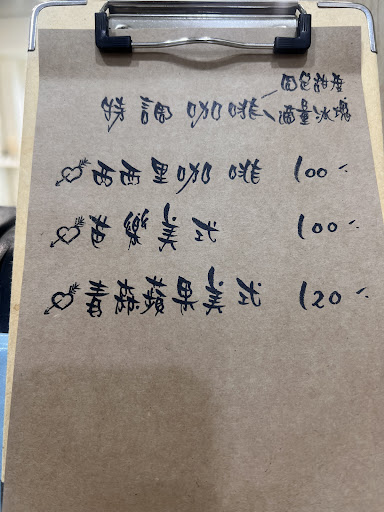 特調咖啡
固定甜度
適量冰塊
西西里咖啡 100.-
芭樂美式 100.-
青森蘋果美式 120.-